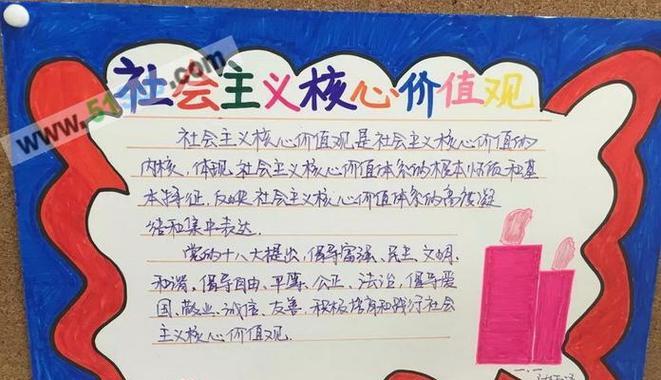 社会主义核心价值观
社会主义核心价值观是社会主义核心价值的
内核，体现社会主义核心价值体系的根本性质和基
本特征，反映社会主义核心价值体系的高度凝
结和集中表达．
党的十八大提出，倡导富强、民主、文明、
和谐、倡导自由、平等、公正、法治，倡导爱
国、敬业、诚信、友善，积极培育和践行社会
主义核心价值观．